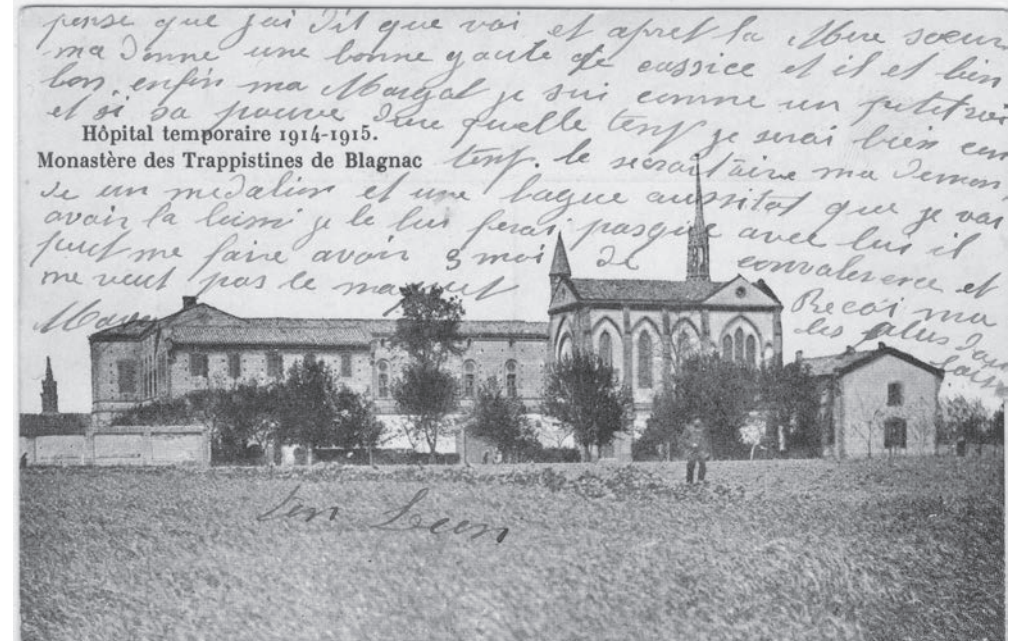 pense que jai dit que vai et apret la Mere soeur
ma donne une bonne goute de cassice et il et bien
bon. enfin ma Margot je sui comme un petit roi
et si sa pouve dure quelle temp je serai bien con
Hôpital temporaire 1914-1915.
Monastère des Trappistines de Blagnac
temp. le secraitaire ma deman
de un medalion et une bague aussitot que je vai
avoir la lumi je le lui ferai pasque avec lui il
peut me faire avoir 3 moi de convalesence et
me veut pas le
Recoi ma
les plus dou
ton Leon